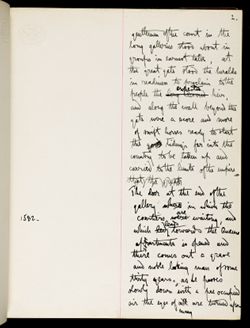 2.
gentlemen of the court in the
long galleries stood about in
groups in earnest talk, at
the great gate stood the heralds
in readiness to proclaim to the
people the expected heir
and along the wall beyond the
gate were a score and more
of swift horses ready to start
the good tidings far into the
country to be taken up and
carried to the limits of the empire
The door at the end of the
gallery in which the
courtiers are waiting, and
which leads towards the Queens
appartments is opened and
there comes out a grave
and noble looking man of some
thirty years, as he passes
slowly down with a pre occupied
air the eyes of all are turned upon
many
1542-